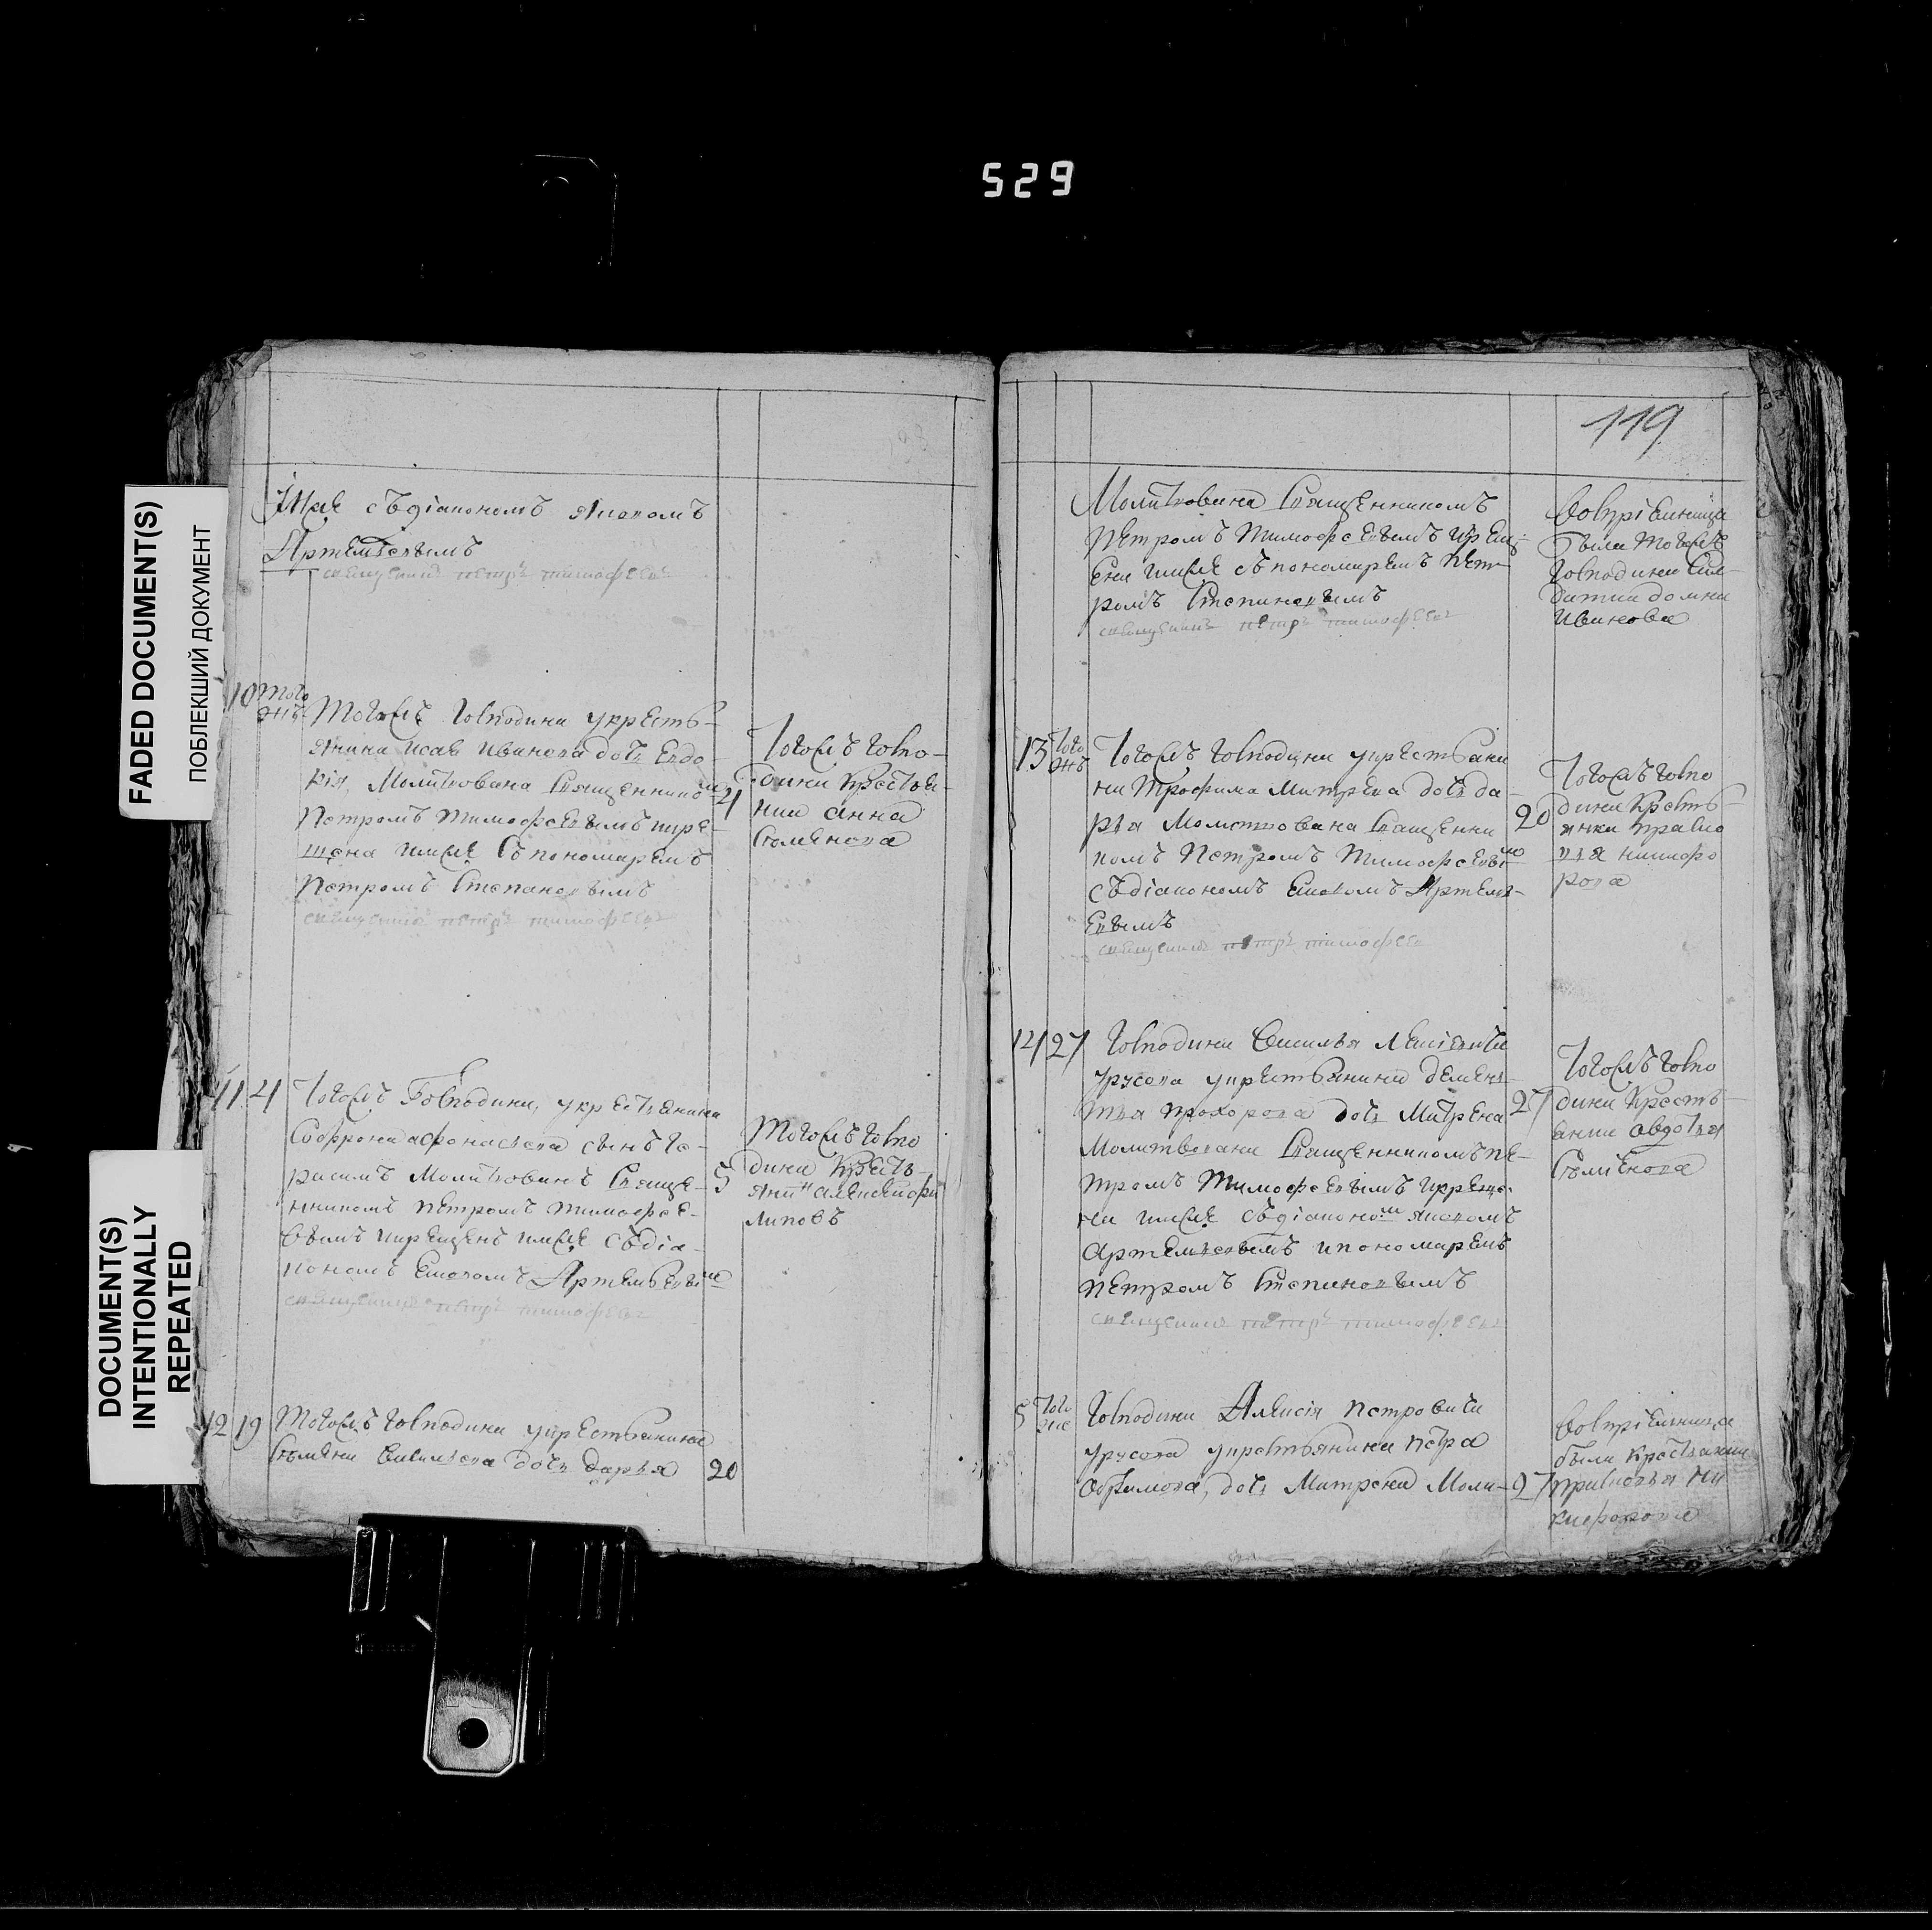 529
FADED DOCUMENT(S)
ПОБЛЕКШИЙ ДОКУМЕНТ
DOCUMENT(S)
INTENTIONALLY
REPEATED
имже съдіакономъ
Артемьевымъ
священникъ петръ тимофеевъ
10 того
жъ
Тогожъ Господина укресть-
янина исая иванова дочь Евдо-
кія, Молитвована Священником
Петромъ Тимофеевымъ икре-
щена имже Съ пономаремъ
Петромъ Степановымъ
священникъ петръ тимофеевъ
4
Тогожъ Госпо-
дина Крестья-
нка анна
Семенова
11 4
Тогожъ Господина, укрестьянина
Софрона афонасьева сынъ Ге-
расимъ Молитвованъ Свяще-
нникомъ Петромъ Тимофее-
вымъ икрещенъ имже Съдіа-
кономъ Артемьевым
священникъ петръ тимофеевъ
5
Тогожъ Госпо
дина Кресть-
янин алексей фи
липовъ
12 19
Тогожъ Господина укрестьянина
Семена дочь дарья
20
119
Молитвована Священникомъ
Петромъ Тимофеевымъ икрещ-
ена имже съпономаремъ Пет-
ромъ Степановымъ
священникъ петръ тимофеевъ
Воспріемница
была тогожъ
Господина
домна
иванова
13 Того
жъ
Тогожъ Господина укрестьяни
на Трофима Митрева дочь да-
рья Молитвована Священни
комъ Петромъ Тимофеевым
съдіакономъ Артемь-
евымъ
священникъ петръ тимофеев
20
Тогожъ Госпо
дина Кресть-
янка праско
вья никифо
рова
14 27
Господина Василья Алексеевича
Урусова укрестьянина Демен-
тья прохорова дочь Матрена
Молитвована Священникомъ Пе-
тромъ Тимофеевымъ икреще-
на имже съдіаконом
Артемьевымъ ипономаремъ
Петромъ Степановымъ
священникъ петръ тимофеевъ
27
Тогожъ Госпо
дина Кресть-
янка авдотья
Семенова
5 Того
же
Господина Алексія Петровича
Урусова укрестьянина Петра
Ефимова, дочь Матрена Моли-
27
Воспріемница
была крестьянка
прасковья Ни
кифорова